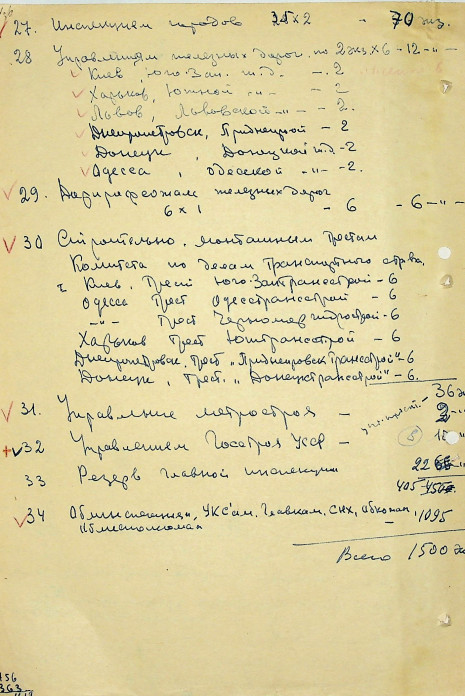 27. Инспекциям городов 35×2 - 70 экз.
28 Управлениям железных дорог по 2 экз × 6 - 12 - " -
Киев Юго-Зап. ж.д. - 2
Харьков, Южной -"- - 2
Львов, Львовской -"- - 2.
Днепропетровск, Приднепр.ой - 2
Донецк, Донецкой ж.д. - 2.
Одесса, Одесской -"- - 2.
29. железных дорог
6 × 1 - 6 - 6 - " -
30 Строительно-монтажным трестам
Комитета по делам транспортного стр-ва,
г Киев, Трест Югозаптрансстрой - 6
Одесса Трест Одестрансстрой - 6
-"- Трест Черномергидрострой - 6
Харьков Трест Южтрансстрой - 6
Днепропетровск, Трест "Приднепровсктрансстрой" - 6
Донецк, Трест "Донецктрансстрой" - 6.
36 э
31. Управление метростроя - 2
32 Управлениям Госстроя УССР - 5 "
33 Резерв Главной инспекции 22
405
34 Облинспекциям, УКС'ам, Главкам, СНХ, Обкомам, 1095
Облисполкомам -
Всего 1500 эк
156
363